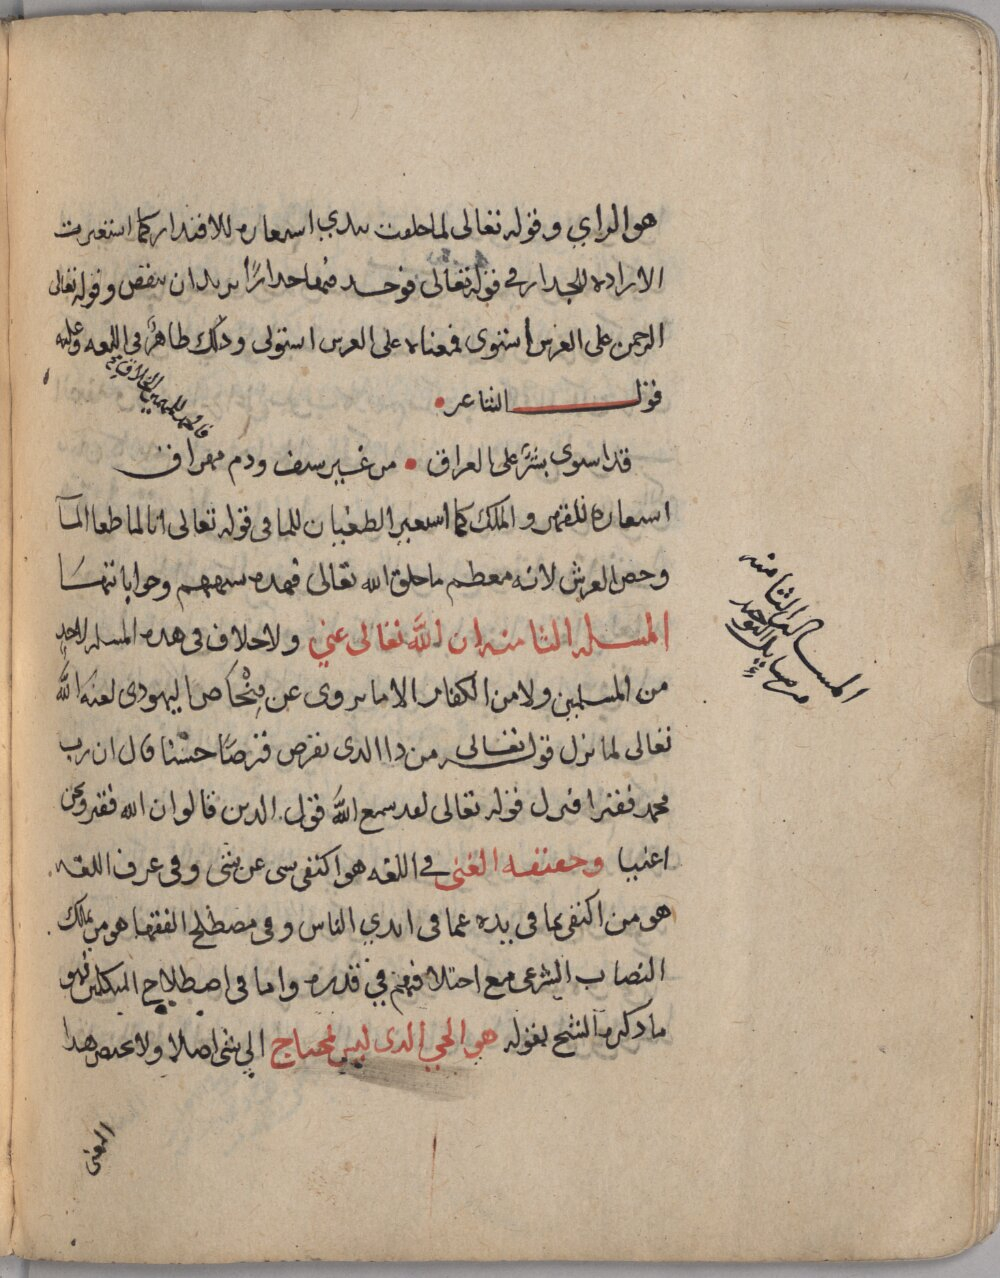 هو الراي وقوله تعالى لما خلقت بيدي استعاره للاقتدار كما استعيرت
الاراده للجدار في قوله تعالى فوجد فيها جدارًا يريد ان ينقض وقوله تعالى
الرحمن على العرش استوى فمعناه على العرش استولى وذلك ظاهرًا في اللغه وعليه
قول الشاعر
فالحمد للمهيمن الخلاق صح
قد استوى بشرٌ على العراق • من غير سيف ودم مهراق
استعاره للقهر والملك كما استعير الطغيان للما في قوله تعالى انا لما طغا المآ
وخص العرش لانه معظم ما خلق الله تعالى فهذه شبههم وجواباتها
المسله الثامنه ان الله تعالى غني ولا خلاف في هذه المسله لاحدٍ
من المسلمين ولا من الكفار الا ما يروى عن فِنْحاص اليهودي لعنه الله
تعالى لما نزل قوله تعالى من ذا الذي يقرض قرضًا حسنا قال ان رب
محمد فقير افنزل قوله تعالى لقد سمع الله قول الذين قالوا ان الله فقير ونحن
اغنيا وحقيقه الغنى في اللغه هو اكتفى بشى عن شى وفى عرف اللغه
هو من اكتفى بما في يده عما في ايدي الناس وفي مصطلح الفقها هو من يملك
النصاب الشرعى مع اختلافهم في قدره واما فى اصطلاح المتكلمين فهو
ما ذكره الشيخ بقوله هو الحي الذي ليس بمحتاج الى شى اصلا ولا يختص هذا
المساله الثامنه
من مسايل التوحيد
الغنى